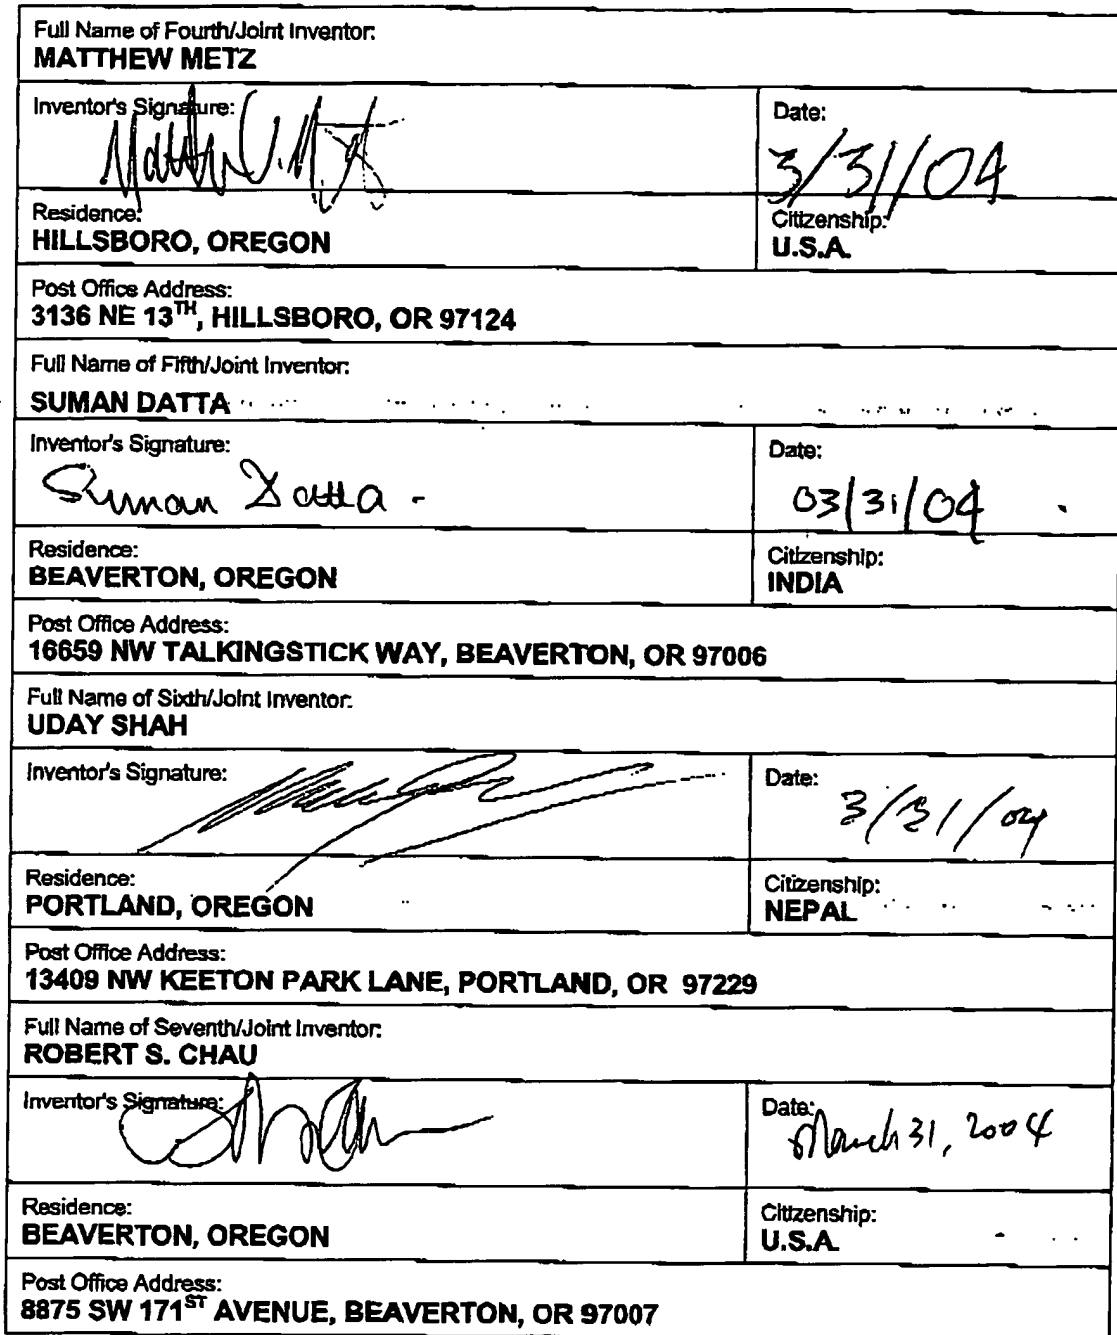 Full Name of Fourth/Joint Inventor:
MATTHEW METZ
Inventor's Signature: Date:
3/31/04
Residence: Citizenship:
HILLSBORO, OREGON U.S.A.
Post Office Address:
3136 NE 13TH, HILLSBORO, OR 97124
Full Name of Fifth/Joint Inventor:
SUMAN DATTA
Inventor's Signature: Date:
Suman Datta - 03/31/04
Residence: Citizenship:
BEAVERTON, OREGON INDIA
Post Office Address:
16659 NW TALKINGSTICK WAY, BEAVERTON, OR 97006
Full Name of Sixth/Joint Inventor:
UDAY SHAH
Inventor's Signature: Date:
3/31/04
Residence: Citizenship:
PORTLAND, OREGON NEPAL
Post Office Address:
13409 NW KEETON PARK LANE, PORTLAND, OR 97229
Full Name of Seventh/Joint Inventor:
ROBERT S. CHAU
Inventor's Signature: Date:
March 31, 2004
Residence: Citizenship:
BEAVERTON, OREGON U.S.A.
Post Office Address:
8875 SW 171ST AVENUE, BEAVERTON, OR 97007